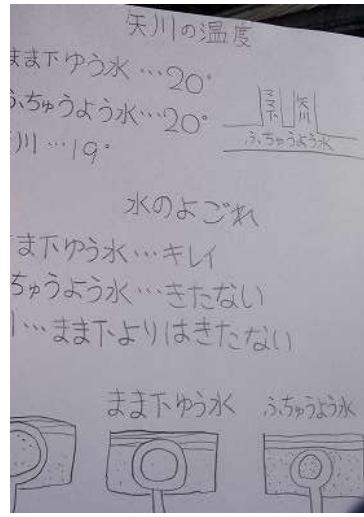 矢川の温度
まま下ゆう水…20°
ふちゅうよう水…20°
川…19°
ママ下
矢川
ふちゅうよう水
水のよごれ
まま下ゆう水…キレイ
ちゅうよう水…きたない
…まま下よりはきたない
まま下ゆう水
ふちゅうよう水